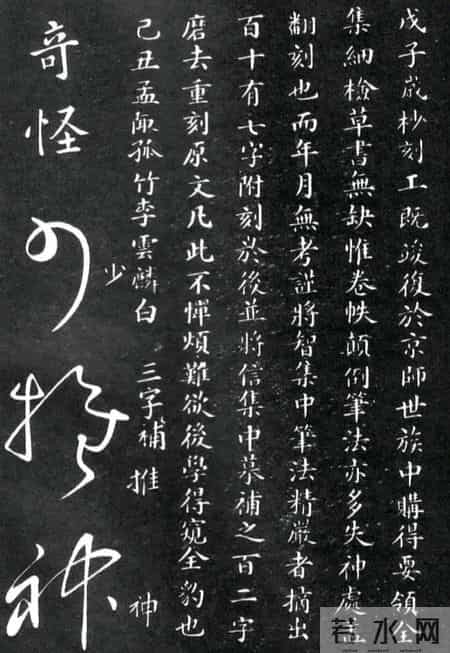 戊子歲杪刻工既竣復於京師世族中購得要領全
集細檢草書無缺惟卷帙顛倒筆法亦多失神處蓋
翻刻也而年月無考謹將智集中筆法精嚴者摘出
百十有七字附刻於後並將信集中摹補之百二字
磨去重刻原文凡此不憚煩難欲後學得窺全豹也
己丑孟陬孤竹李雲麟白 三字補
奇怪
少 推 神
少 推 神
若水网